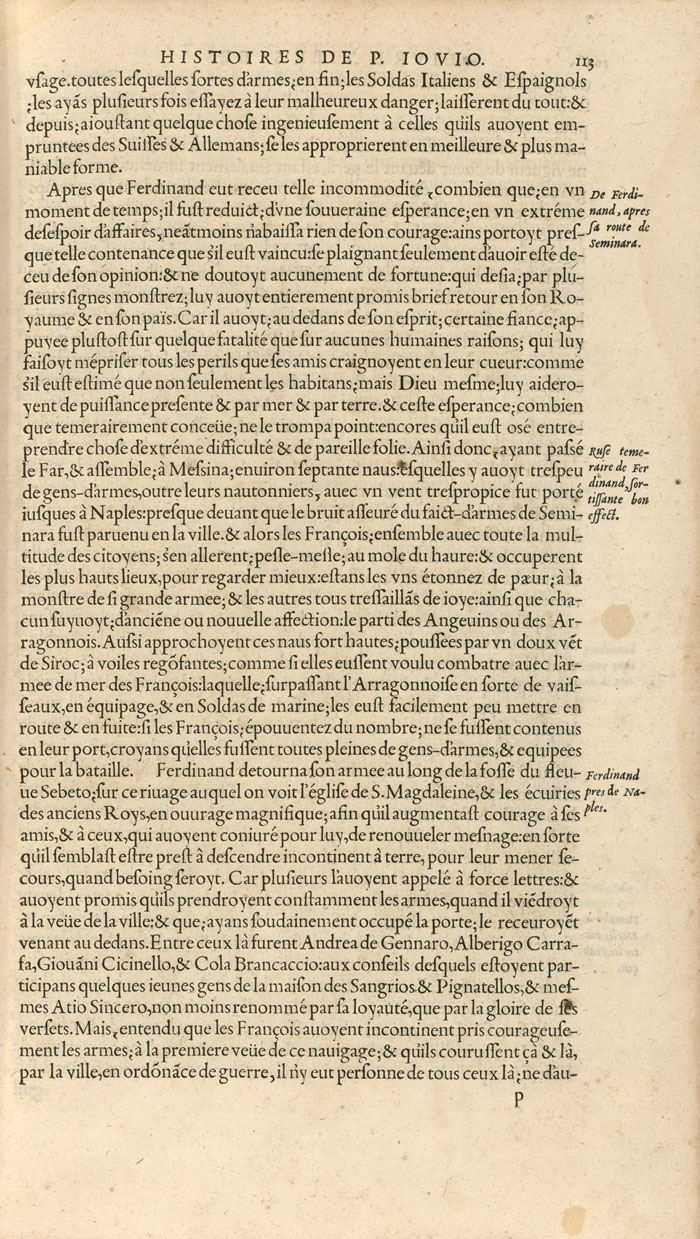 HISTOIRES DE P. IOVIO. 113
vſage.toutes leſquelles ſortes d'armes;en fin;les Soldas Italiens & Eſpaignols
;les ayās pluſieurs fois eſſayez à leur malheureux danger;laiſſerent du tout:&
depuis;aiouſtant quelque choſe ingenieuſement à celles qu'ils auoyent em-
pruntees des Suiſſes & Allemans;ſe les approprierent en meilleure & plus ma-
niable forme.
Apres que Ferdinand eut receu telle incommodité ;combien que;en vn
De Ferdi-
moment de temps;il fuſt reduict;d'vne ſouueraine eſperance;en vn extréme
nand, apres
deſeſpoir d'affaires, neātmoins n'abaiſſa rien de ſon courage:ains portoyt preſ-
ſa route de
que telle contenance que s'il euſt vaincu:ſe plaignant ſeulement d'auoir eſté de-
Seminara.
ceu de ſon opinion:& ne doutoyt aucunement de fortune:qui deſia;par plu-
ſieurs ſignes monſtrez;luy auoyt entierement promis brief retour en ſon Ro-
yaume & en ſon païs.Car il auoyt;au dedans de ſon eſprit;certaine fiance;ap-
puyee pluſtoſt ſur quelque fatalité que ſur aucunes humaines raiſons; qui luy
faiſoyt mépriſer tous les perils que ſes amis craignoyent en leur cueur:comme
s'il euſt eſtimé que non ſeulement les habitans;mais Dieu meſme;luy aidero-
yent de puiſſance preſente & par mer & par terre.& ceſte eſperance;combien
que temerairement conceüe; ne le trompa point:encores qu'il euſt osé entre-
prendre choſe d'extréme difficulté & de pareille folie. Ainſi donc,ayant paſſé
Ruſe teme-
le Far,& aſſemble;à Meſsina;enuiron ſeptante naus:eſquelles y auoyt treſpeu
raire de Fer
de gens-d'armes,outre leurs nautonniers, auec vn vent treſpropice fut porté
dinand, ſor-
tiſſante bon
iuſques à Naples:preſque deuant que le bruit aſſeuré du faict-d'armes de Semi-
effect.
nara fuſt paruenu en la ville.& alors les François;enſemble auec toute la mul-
titude des citoyens; s'en allerent;peſle-meſle;au mole du haure:& occuperent
les plus hauts lieux,pour regarder mieux:eſtans les vns étonnez de pæur;à la
monſtre de ſi grande armee;& les autres tous treſſaillās de ioye:ainſi que cha-
cun ſuyuoyt;d'anciéne ou nouuelle affection:le parti des Angeuins ou des Ar-
ragonnois. Auſsi approchoyent ces naus fort hautes;pouſſees par vn doux vēt
de Siroc; à voiles regōfantes; comme ſi elles euſſent voulu combatre auec l'ar-
mee de mer des François:laquelle;ſurpaſſant l'Arragonnoiſe en ſorte de vaiſ-
ſeaux,en équipage,& en Soldas de marine;les euſt facilement peu mettre en
route & en fuite:ſi les François;épouuentez du nombre; ne ſe fuſſent contenus
en leur port,croyans qu'elles fuſſent toutes pleines de gens-d'armes,& equipees
pour la bataille. Ferdinand detourna ſon armee au long de la foſſe du fleu-
Ferdinand
ue Sebeto;ſur ce riuage auquel on voit l'égliſe de S.Magdaleine,& les écuiries
pres de Na-
des anciens Roys,en ouurage magnifique; afin qu'il augmentaſt courage à ſes
ples.
amis,& à ceux,qui auoyent coniuré pour luy,de renouueler meſnage:en ſorte
qu'il ſemblaſt eſtre preſt à deſcendre incontinent à terre, pour leur mener ſe-
cours,quand beſoing ſeroyt. Car pluſieurs l'auoyent appelé à force lettres:&
auoyent promis qu'ils prendroyent conſtamment les armes,quand il viēdroyt
à la veüe de la ville:& que;ayans ſoudainement occupé la porte;le receuroyēt
venant au dedans. Entre ceux là furent Andrea de Gennaro, Alberigo Carra-
fa,Giouāni Cicinello,& Cola Brancaccio:aux conſeils deſquels eſtoyent par-
ticipans quelques ieunes gens de la maiſon des Sangrios & Pignatellos,& meſ-
mes Atio Sincero,non moins renommé par ſa loyauté,que par la gloire de ſes
verſets. Mais;entendu que les François auoyent incontinent pris courageuſe-
ment les armes;à la premiere veüe de ce nauigage;& qu'ils couruſſent çà & là,
par la ville,en ordōnāce de guerre, il n'y eut perſonne de tous ceux là;ne d'au-
P